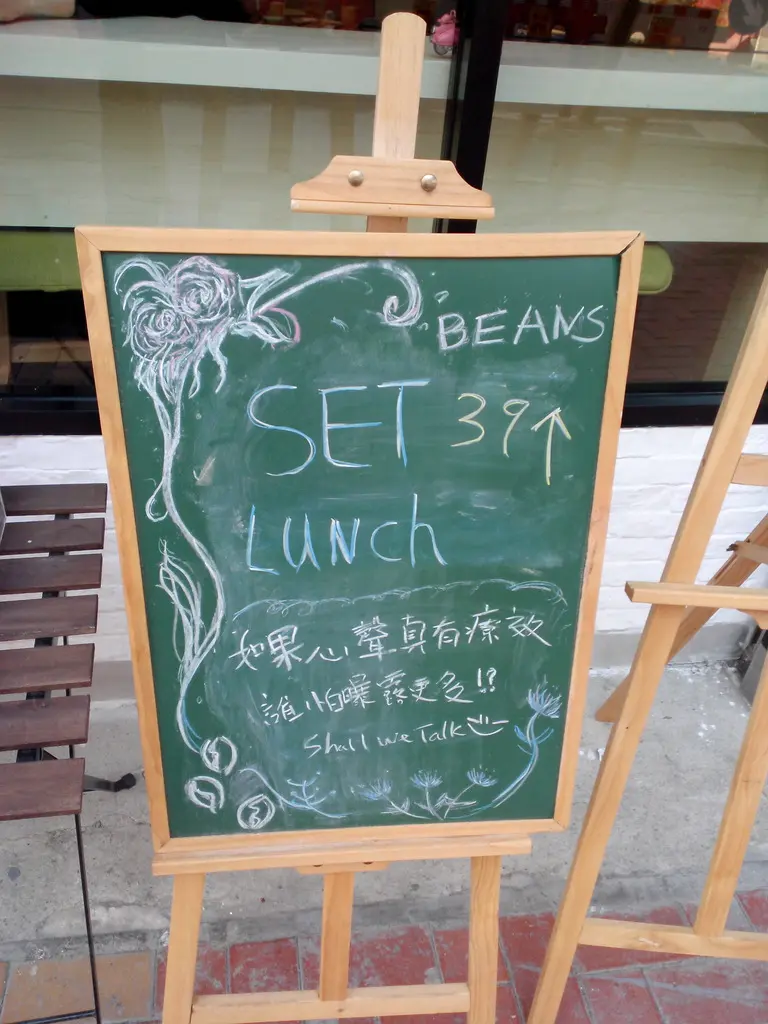 BEANS
SET 39↑
LUNCh
如果心聲真有療效
誰怕曝露更多!?
Shall we Talk